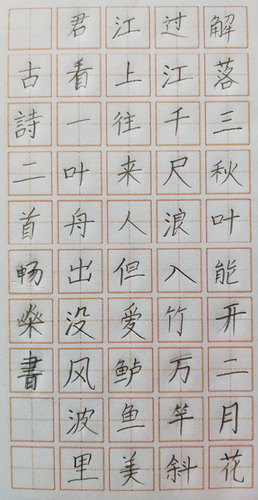 解落三秋叶能开二月花
过江千尺浪入竹万竿斜
江上往来人但爱鲈鱼美
君看一叶舟出没风波里
古詩二首畅燊書